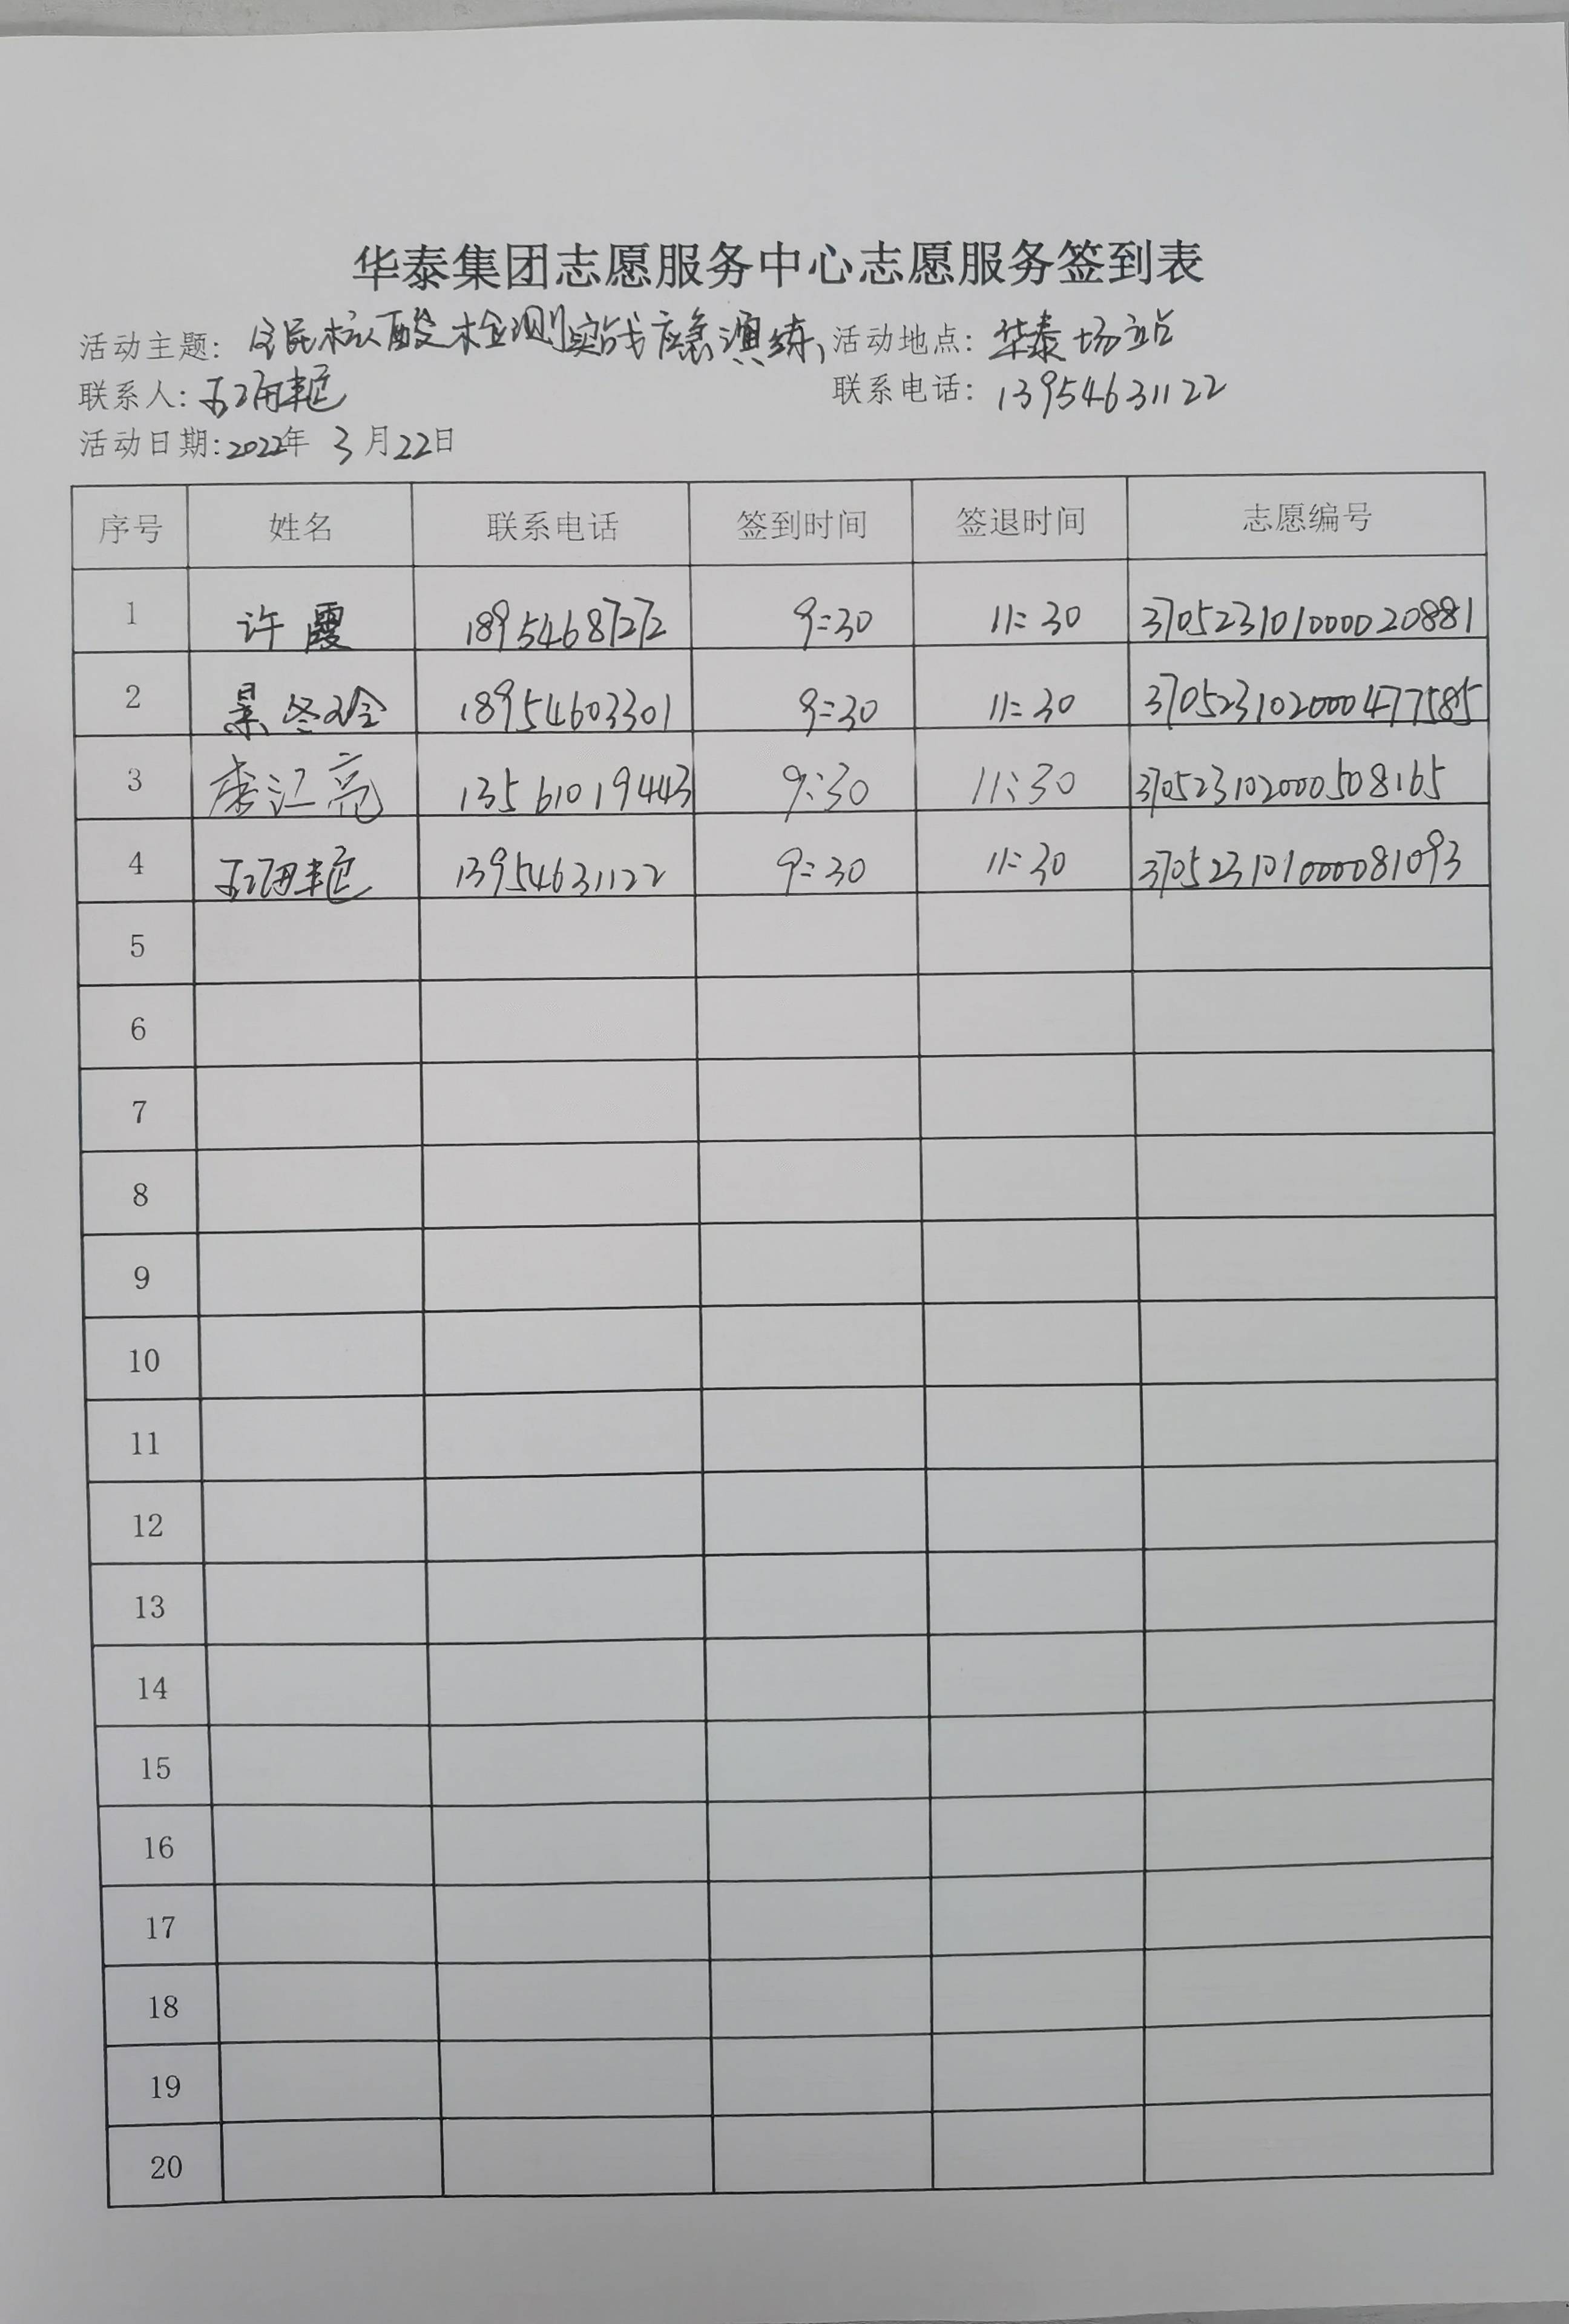 华泰集团志愿服务中心志愿服务签到表
活动主题: 全民核酸检测实战应急演练 活动地点: 华泰场站
联系人: 联系电话: 13954631122
活动日期: 2022年 3月22日
序号 姓名 联系电话 签到时间 签退时间 志愿编号
1 许霞 18954687272 9:30 11:30 370523101000020881
2 景冬玲 18954603301 9:30 11:30 370523102000477585
3 李江亮 13561019443 9:30 11:30 370523102000508165
4 13954631122 9:30 11:30 370523101000081093
5
6
7
8
9
10
11
12
13
14
15
16
17
18
19
20